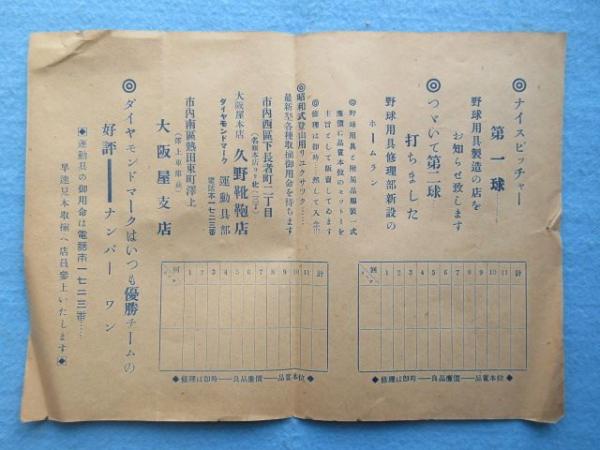 ◎ナイスピッチャー
第一球……
野球用具製造の店を
お知らせ致します
◎つゞいて第二球
打ちました
ホームラン
野球用具修理部新設の
◎野球用具と附属品服装一式
廉價に品質本位のモットーを
主旨として販賣してゐます
◎修理は即時…然して入念…
◎昭和式登山用リユクサツク……
最新型各種取揃御用命を待ちます
市内西區下長者町二丁目
大阪屋本店 久野靴鞄店
ダイヤモンドマーク 運動具部
電話本一七二三番
市内南區熱田東町澤上
(澤上車庫前)
大阪屋支店
◎ダイヤモンドマークはいつも優勝チームの
好評━━ナンバーワン
◆運動具の御用命は電話本一七二三番……
早速見本取揃へ店員參上いたします◆
回 1 2 3 4 5 6 7 8 9 10 11 計
◆修理は即時──良品廉價──品質本位◆
回 1 2 3 4 5 6 7 8 9 10 11 計
◆修理は即時──良品廉價──品質本位◆